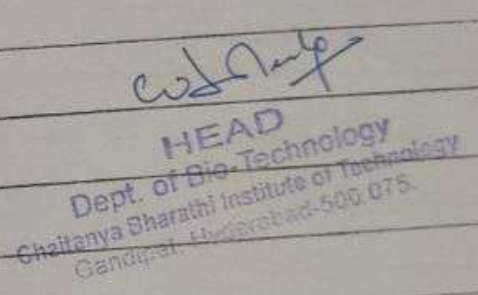 HEAD
Dept. of Bio-Technology
Chaitanya Bharathi Institute of Technology
Gandipet, Hyderabad-500 075.